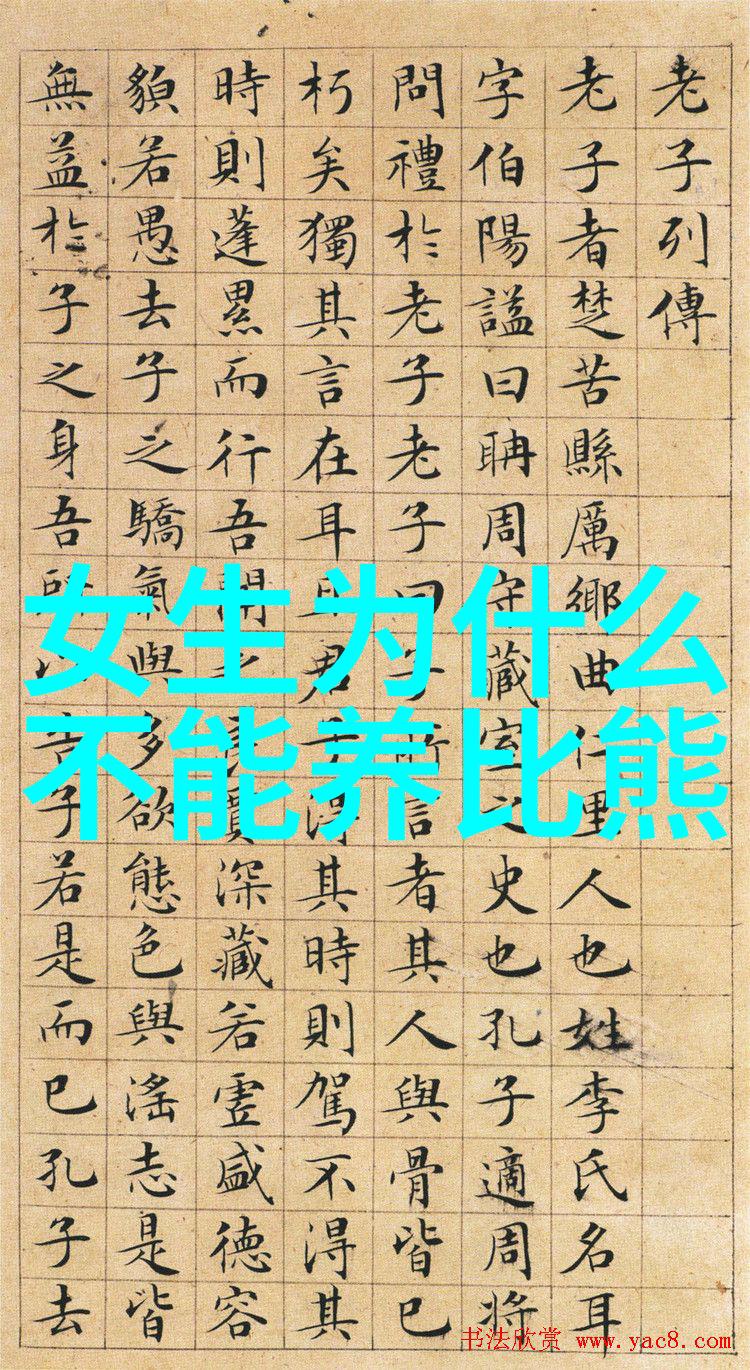 老子列傳
老子者楚苦縣厲鄉曲仁里人也姓李氏名耳
字伯陽諡曰聃周守藏室之史也孔子適周將
問禮於老子老子曰子所言者其人與骨皆已
朽矣獨其言在耳且君子得其時則駕不得其
時則蓬累而行吾聞之良賈深藏若虛盛德容
貌若愚去子之驕氣與多欲態色與淫志是皆
無益於子之身吾所以告子若是而已孔子去
女生为什么
不能养比熊
书法欣赏 www.yac8.com